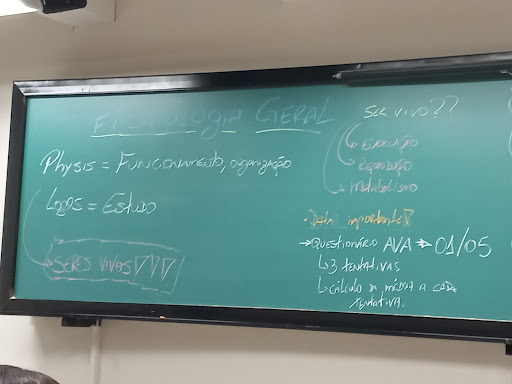 FISIOLOGIA GERAL
Physis = FUNCIONAMENTO, organização
Logos = ESTUDO
SERES VIVOS
SER VIVO??
EVOLUÇÃO
REPRODUÇÃO
Metabolismo
Data importante
QUESTIONÁRIO AVA → 01/05
↳ 3 TENTATIVAS
↳ CÁLCULO DA MÉDIA A CADA
TENTATIVA.